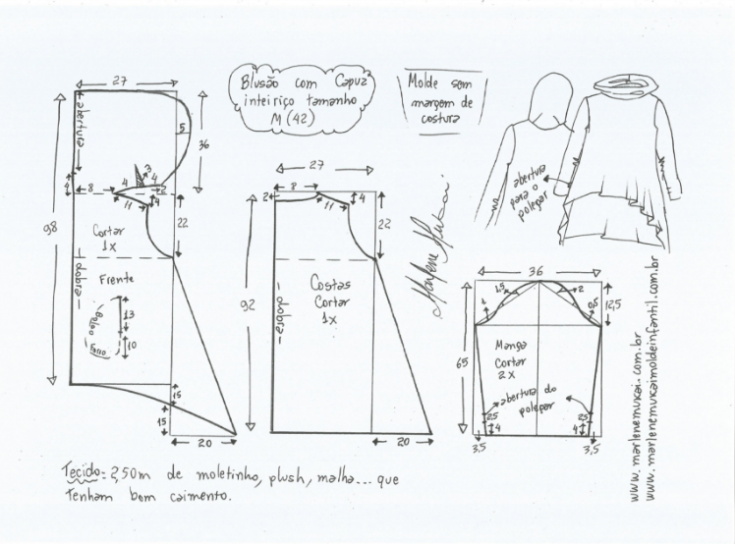 Blusão com Capuz
inteiriço tamanho
M (42)
Molde sem
margem de
costura
27
abertura
5
36
3
4
4
2
4
8
11
4
22
98
Cortar
1x
dobra
Frente
Bolso
Faca
13
10
15
15
20
27
2
8
11
4
22
92
Costas
Cortar
1x
dobra
20
Marlene Mukai
abertura
para o
polegar
36
1,5
2
1
0,5
12,5
65
Manga
Cortar
2x
abertura do
polegar
25
4
25
4
3,5
3,5
www.marlenemukai.com.br
www.marlenemukaimoldeinfantil.com.br
Tecido: 2,50m de moletinho, plush, malha... que
Tenham bom caimento.